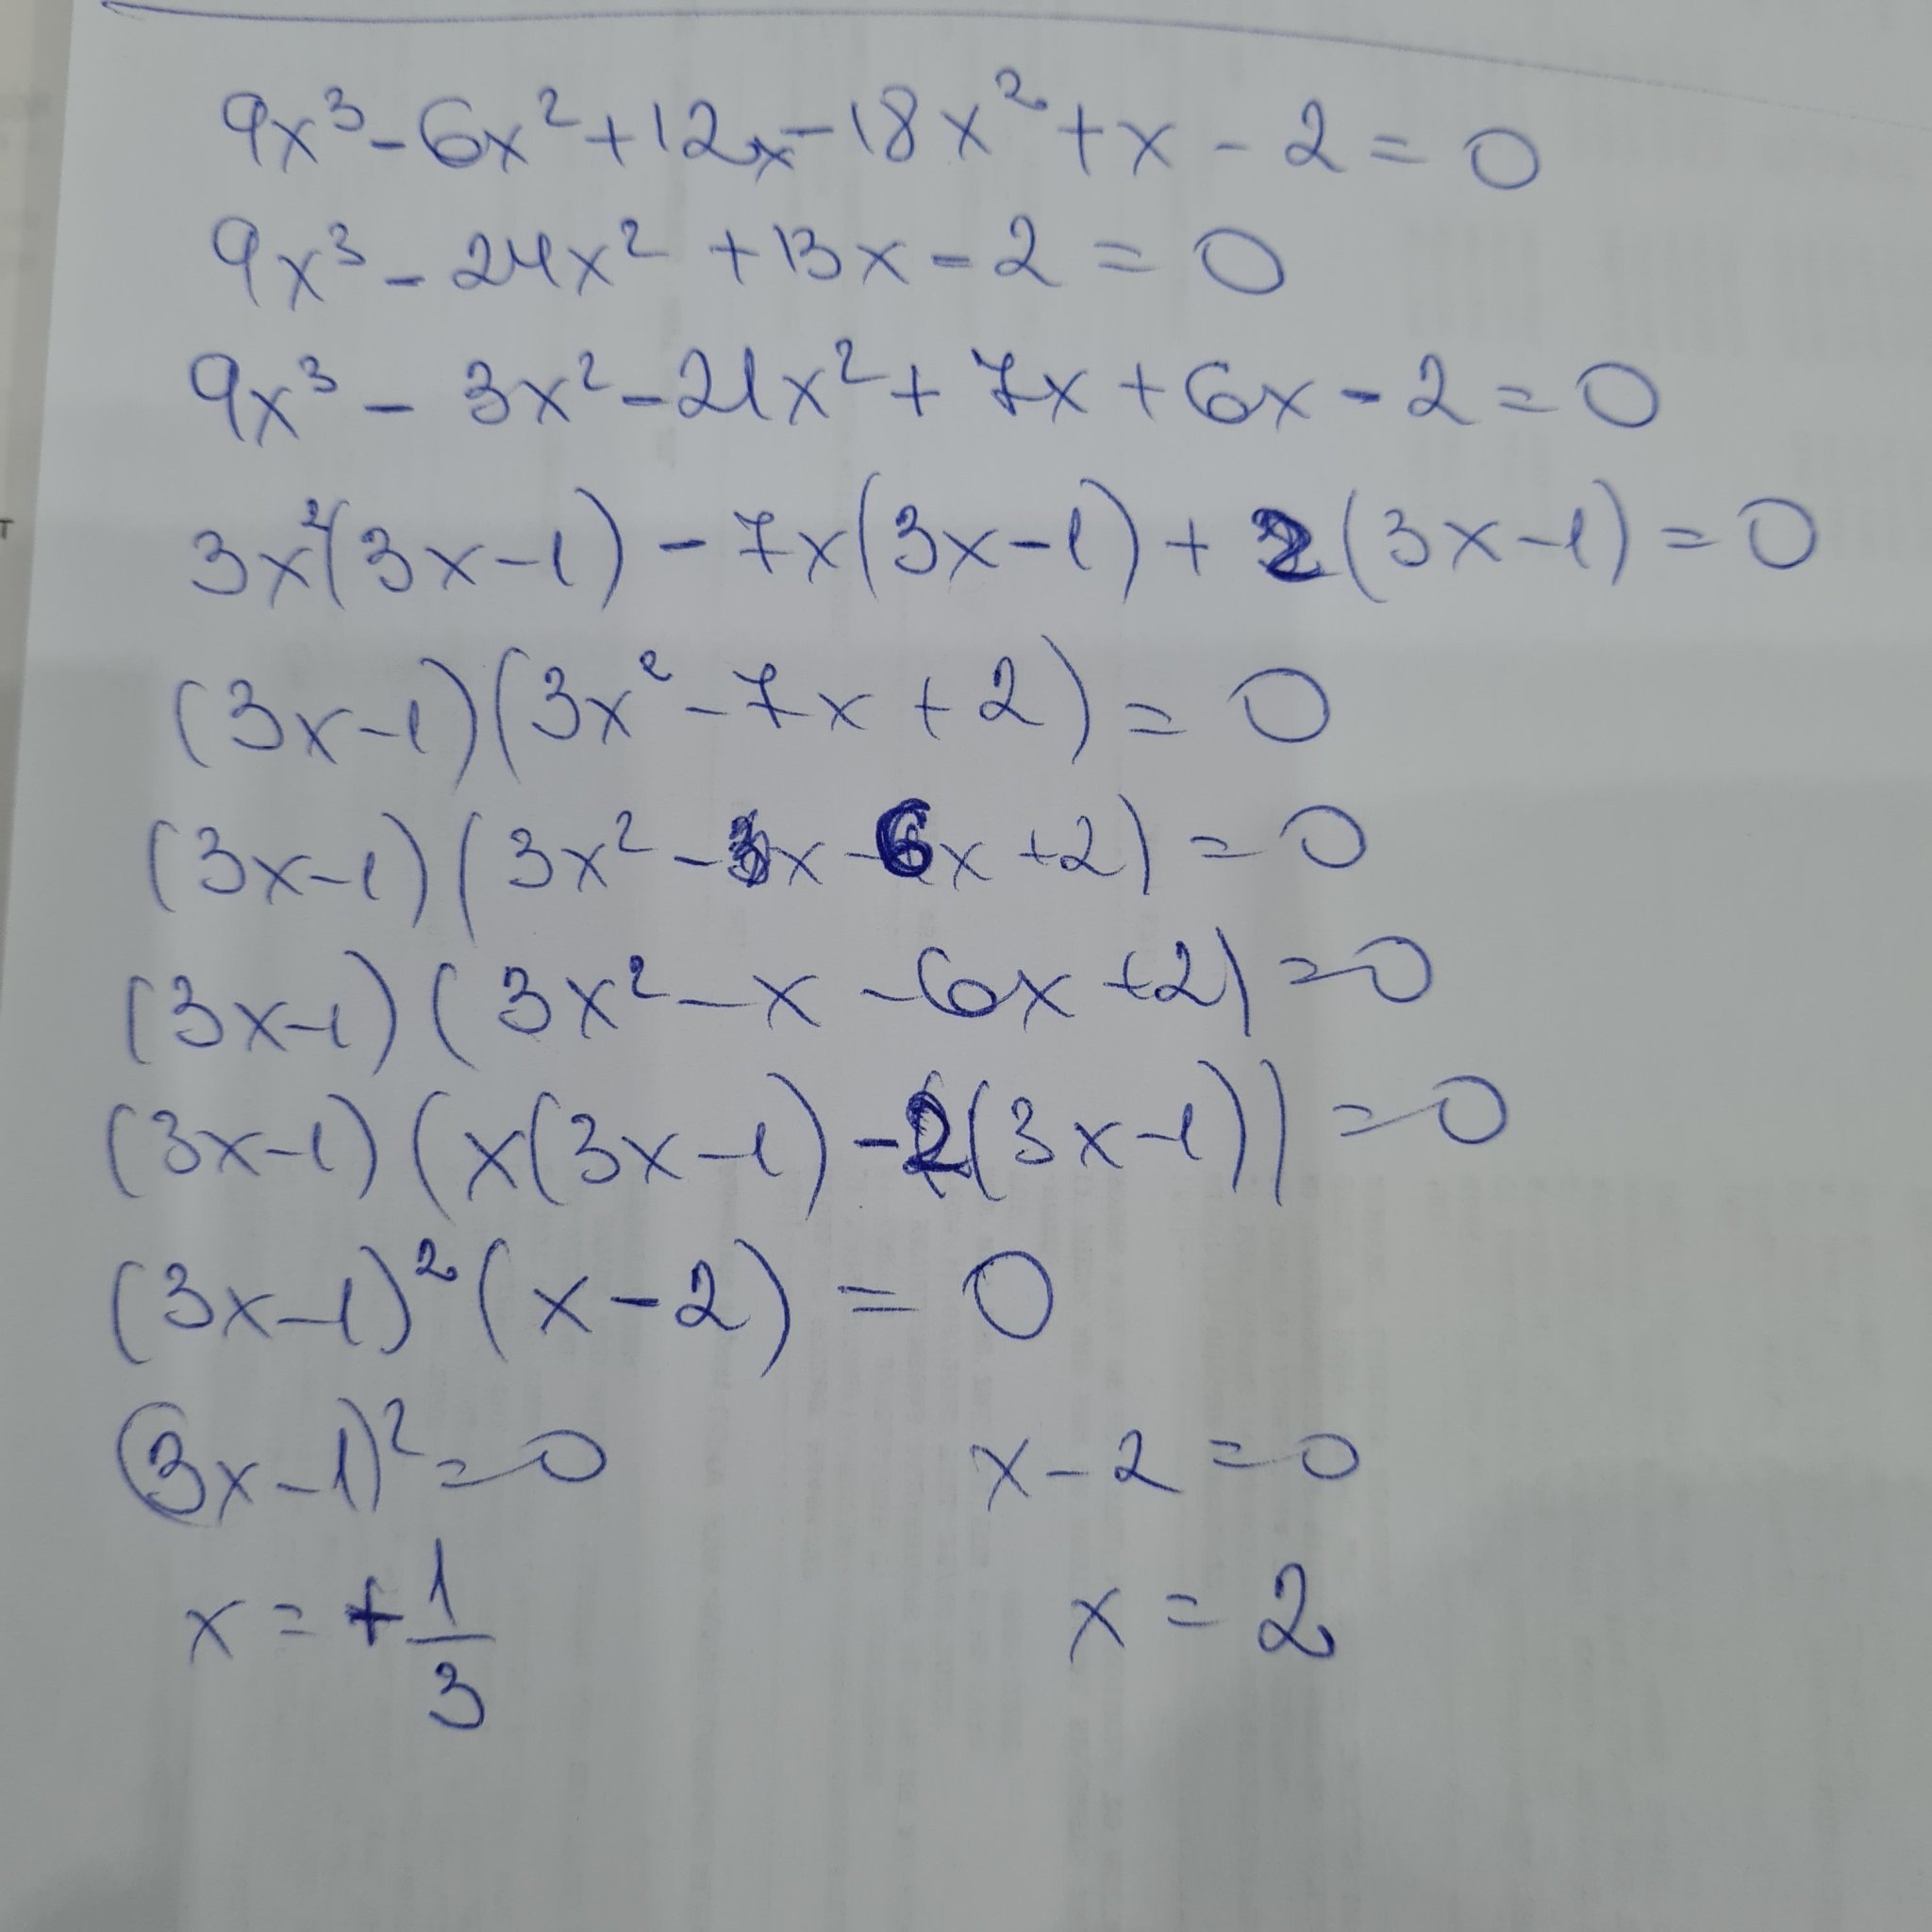 9x³ - 6x² + 12x - 18x² + x - 2 = 0
9x³ - 24x² + 13x - 2 = 0
9x³ - 3x² - 21x² + 7x + 6x - 2 = 0
3x²(3x-1) - 7x(3x-1) + 2(3x-1) = 0
(3x-1)(3x² - 7x + 2) = 0
(3x-1)(3x² - x - 6x + 2) = 0
(3x-1)(3x² - x - 6x + 2) = 0
(3x-1)(x(3x-1) - 2(3x-1)) = 0
(3x-1)²(x-2) = 0
(3x-1)² = 0 x - 2 = 0
x = +1/3 x = 2